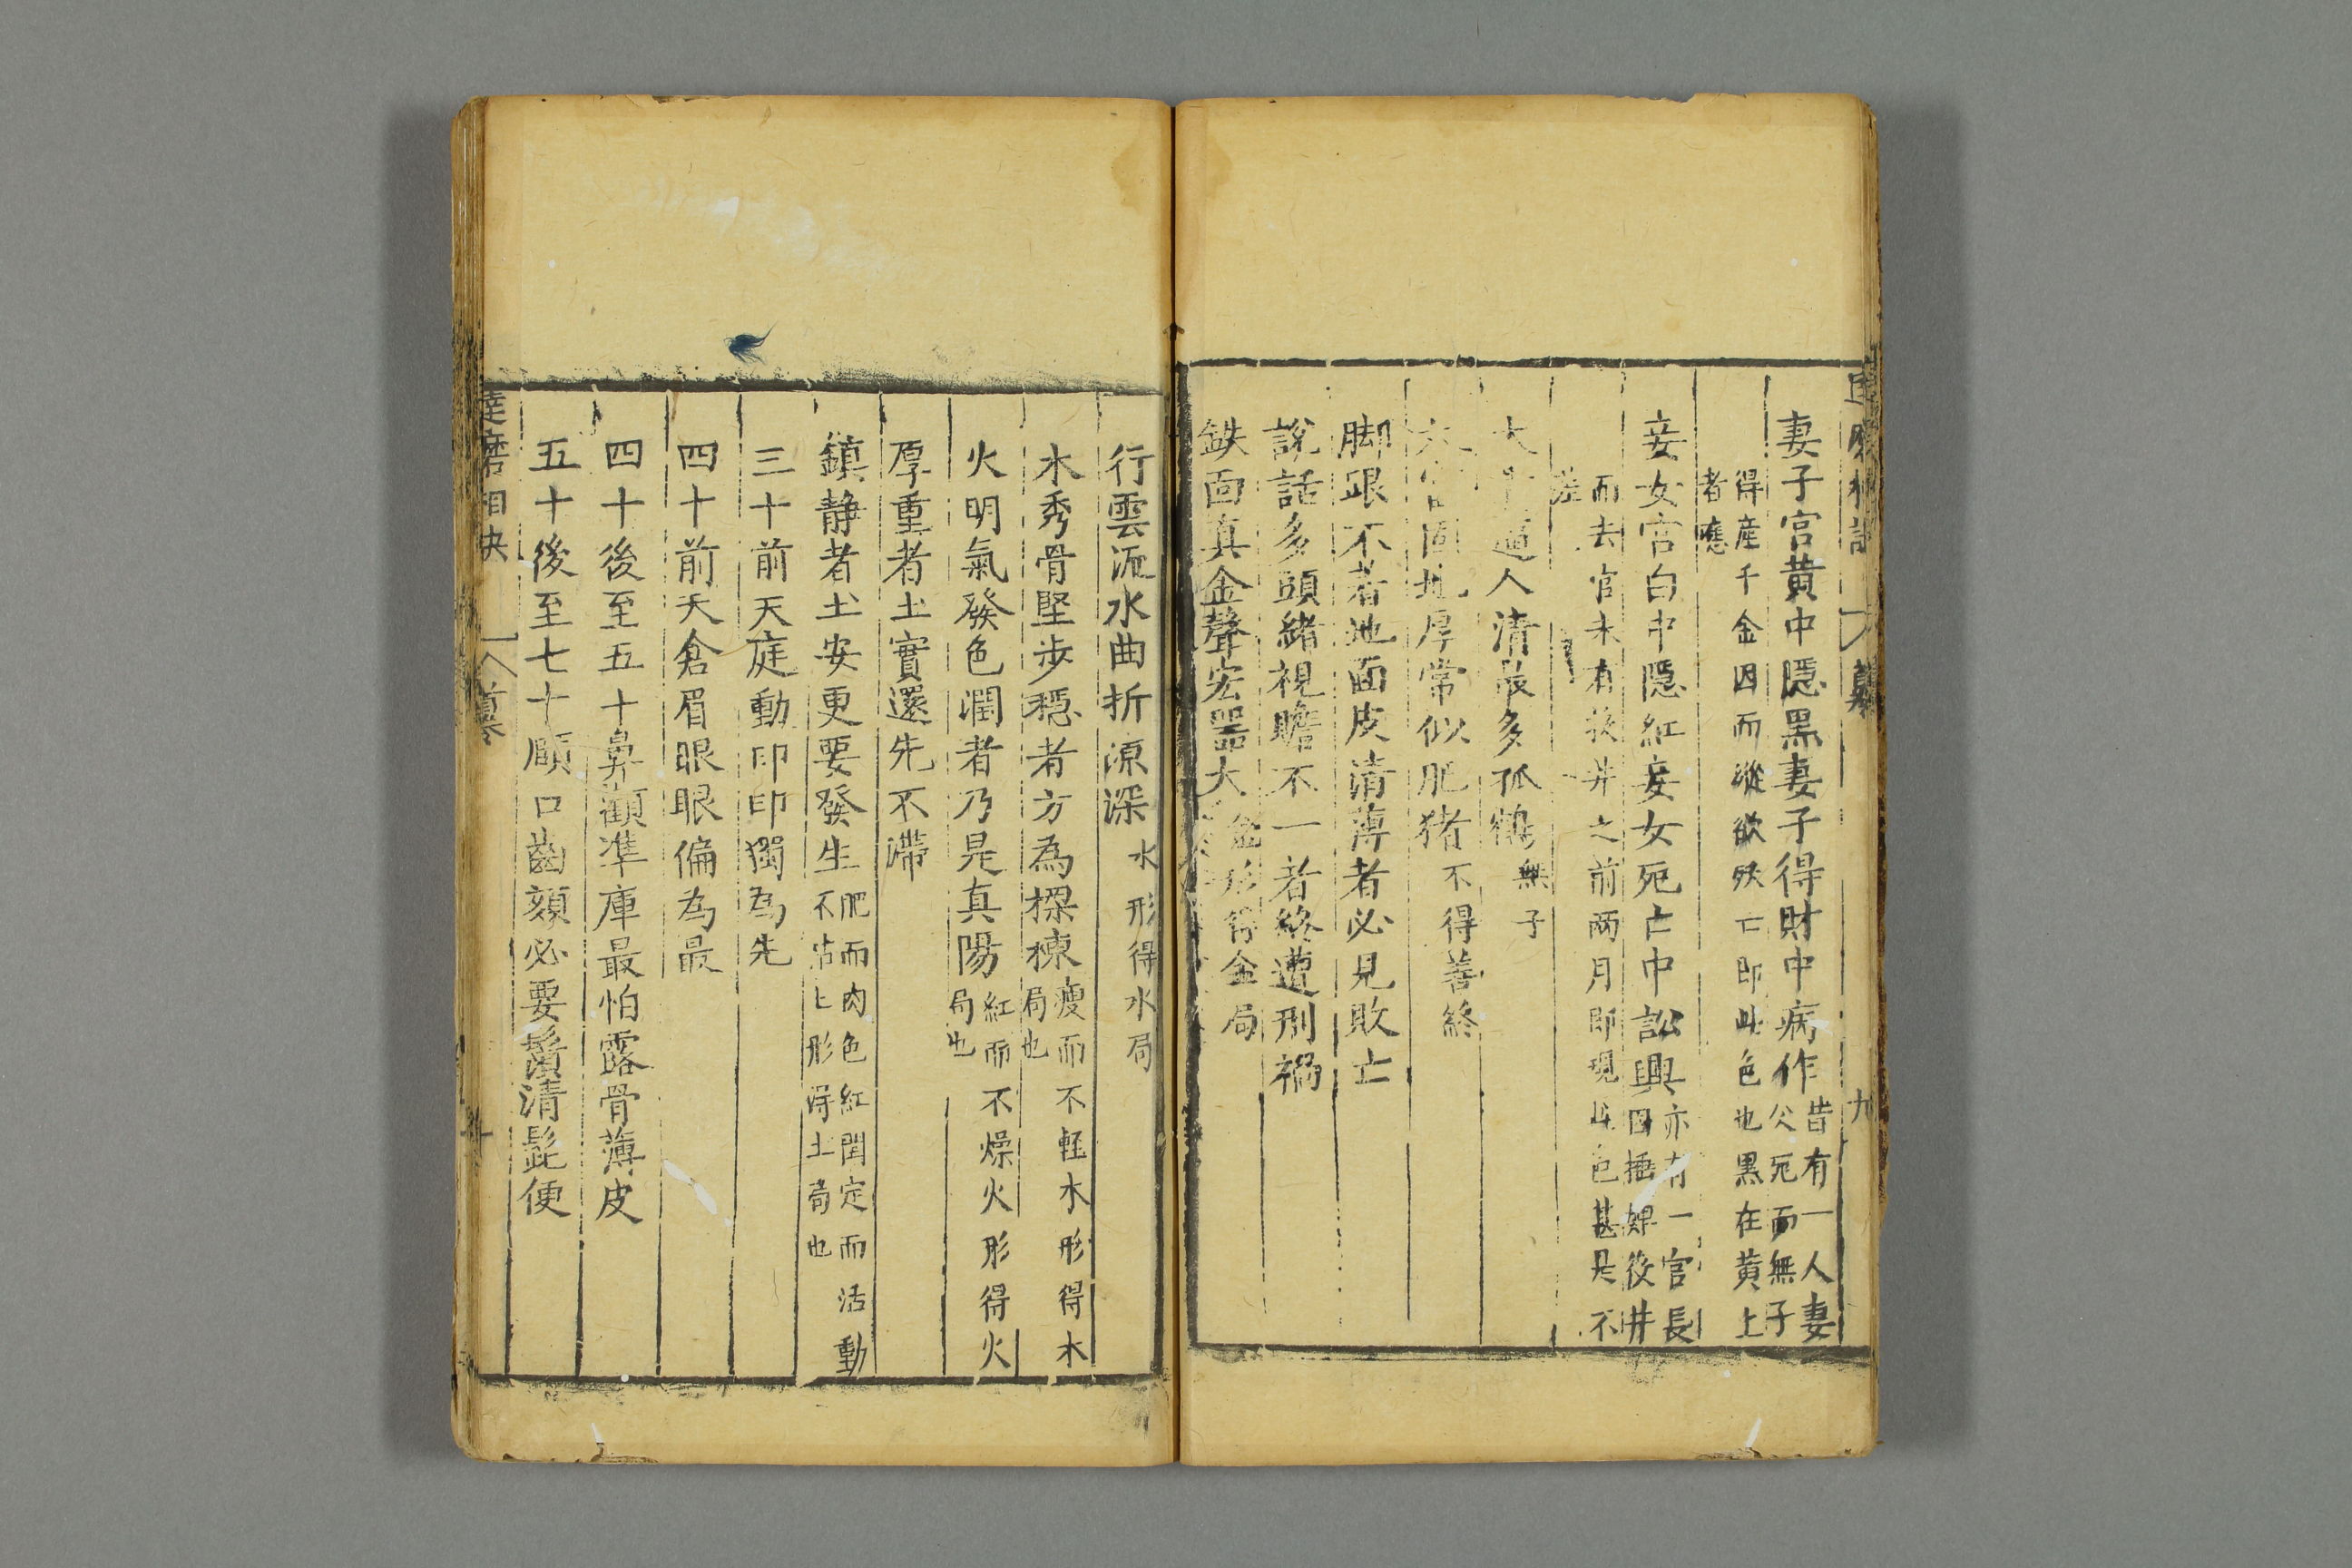 妻子宮黄中隱黑妻子得財中病作皆有一人妻父死而無子
得産千金因而縱欲殀亡即此色也黒在黄上者應
妾女宮白中隱紅妾女死亡中訟興亦有一官長因插婢後井
而去官未有投井之前两月即現此色甚是不差
大 道人清最多孤鶴無子
厚常似肥猪不得善終
脚跟不着地面皮清薄者必見敗亡
說話多頭緒視瞻不一者終遭刑禍
鉄面真金聲宏噐大金形得金局
行雲流水曲折源深水形得水局
木秀骨堅步穏者方為樑棟瘦而不軽木形得木局也
火明氣發色潤者乃是真陽紅而不燥火形得火局也
厚重者土實還先不滯
鎮静者土安更要發生肥而肉色紅閏定而活動不 土形得土局也
三十前天庭動印印獨為先
四十前天倉眉眼眼偏為最
四十後至五十鼻顴準庫最怕露骨薄皮
五十後至七十頤口齒頦必要鬚清髭便
達磨相决